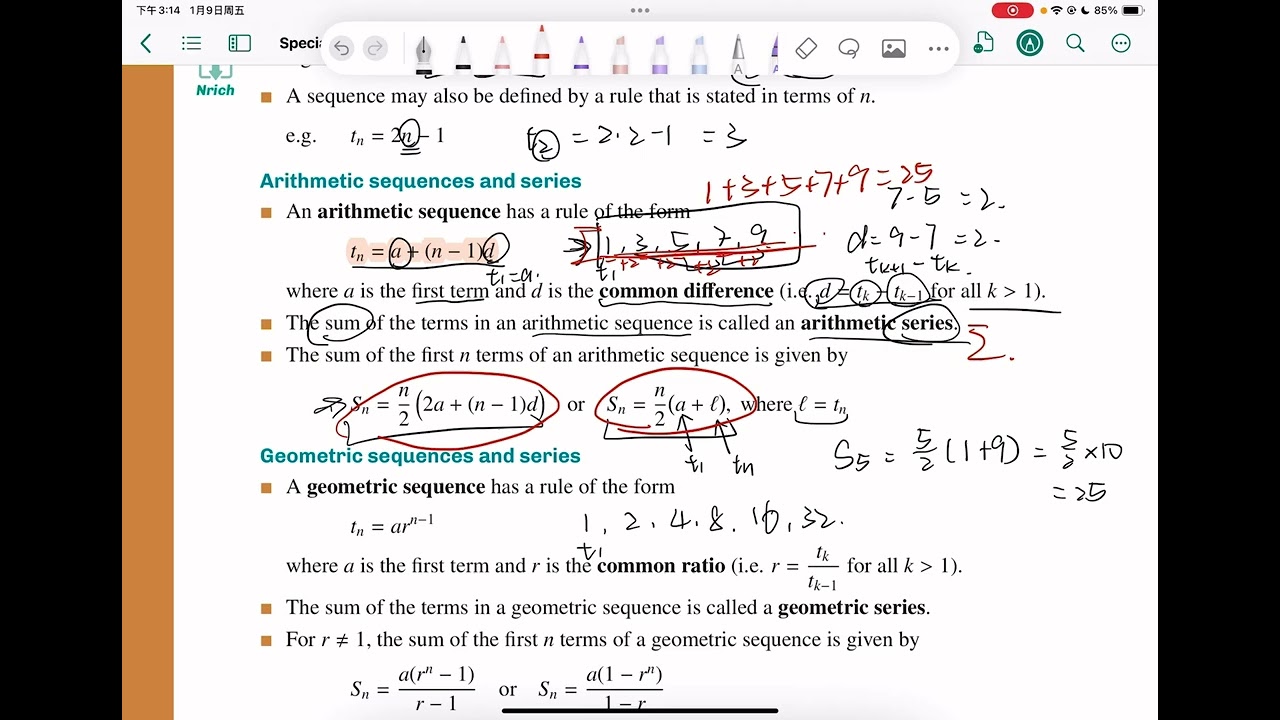 下午3:14 1月9日周五
85%
Specia
Nrich
A sequence may also be defined by a rule that is stated in terms of n.
e.g. tₙ = 2n − 1 t₂ = 2·2−1 = 3
Arithmetic sequences and series
1+3+5+7+9=25
7−5 =2.
An arithmetic sequence has a rule of the form
tₙ = a + (n − 1)d
1, 3, 5, 7, 9
d=9−7=2.
t₁ +2 +2 +2 +2
t₁=a.
tₖ₊₁ − tₖ.
where a is the first term and d is the common difference (i.e. d = tₖ − tₖ₋₁ for all k > 1).
The sum of the terms in an arithmetic sequence is called an arithmetic series.
Σ.
The sum of the first n terms of an arithmetic sequence is given by
Sₙ = n/2 (2a + (n − 1)d) or Sₙ = n/2 (a + ℓ), where ℓ = tₙ
t₁ tn
S₅ = 5/2 (1+9) = 5/2 ×10
=25
Geometric sequences and series
A geometric sequence has a rule of the form
tₙ = arⁿ⁻¹
1, 2, 4, 8, 16, 32.
t₁
where a is the first term and r is the common ratio (i.e. r = tₖ/tₖ₋₁ for all k > 1).
The sum of the terms in a geometric sequence is called a geometric series.
For r ≠ 1, the sum of the first n terms of a geometric sequence is given by
Sₙ = a(rⁿ − 1)/r − 1 or Sₙ = a(1 − rⁿ)/1 − r